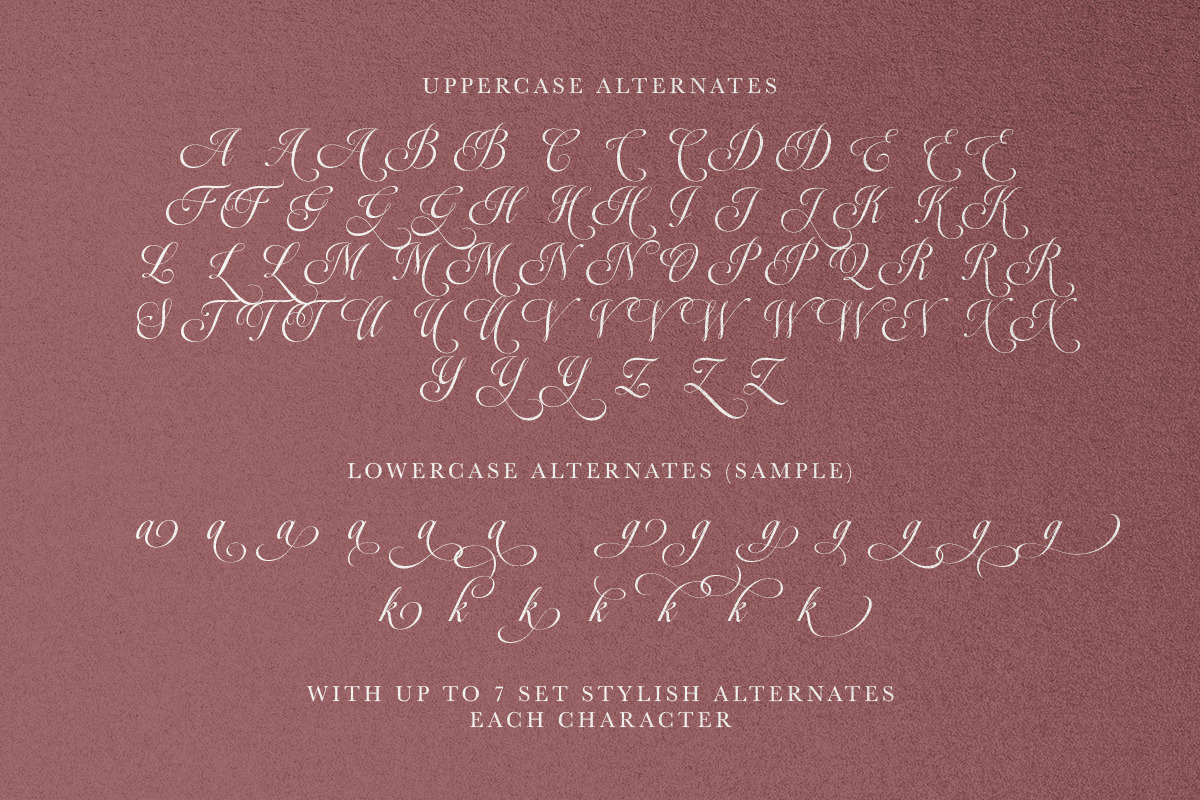 UPPERCASE ALTERNATES
A A A B B C C C D D E E E
F F G G G H H H I I J K K K
L L L M M M N N O P P Q R R R
S T T T U U U V V V W W W N X X
Y Y Y Z Z Z
LOWERCASE ALTERNATES (SAMPLE)
a a a a a a g g g g g g g
k k k k k k k
WITH UP TO 7 SET STYLISH ALTERNATES
EACH CHARACTER